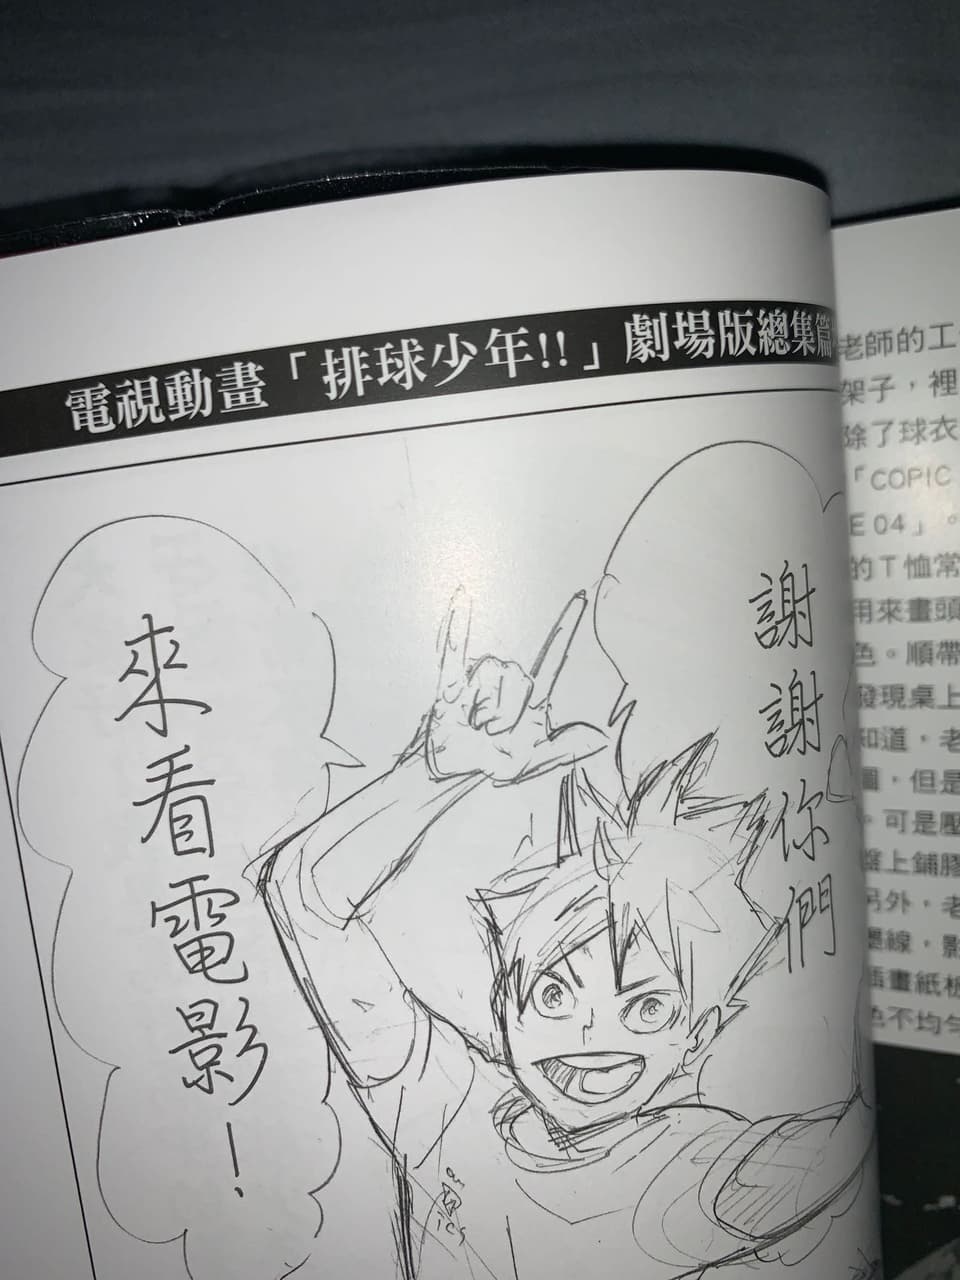 電視動畫「排球少年!!」劇場版總集篇
謝謝你們
來看電影！
老師的工
架子，裡
除了球衣
「COPIC
E 04」。
的T恤常
用來畫頭
色。順帶
發現桌上
知道，老
圖，但是
。可是壓
盤上鋪膠
另外，老
墨線，影
插畫紙板
色不均勻